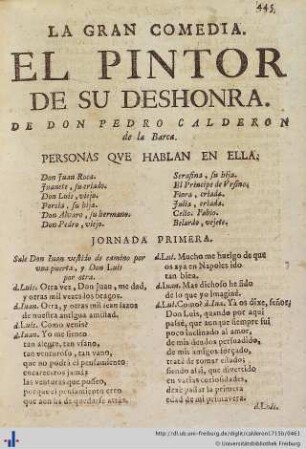 445
LA GRAN COMEDIA.
EL PINTOR
DE SU DESHONRA.
DE DON PEDRO CALDERON
de la Barca.
PERSONAS QVE HABLAN EN ELLA:
Don Juan Roca.
Juanete, su criado.
Don Luis, viejo.
Porcia, su hija.
Don Alvaro, su hermano.
Don Pedro, viejo.
Serafina, su hija.
El Principe de Vrsino,
Flora, criada.
Julia, criada.
Celio. Fabio.
Belardo, vejete.
JORNADA PRIMERA.
Sale Don Juan vestido de camino por
una puerta, y Don Luis
por otra.
d.Luis. Otra vez, Don Juan, me dad,
y otras mil vezes los brazos.
d.Juan. Otra, y otras mil sean lazos
de nuestra antigua amistad.
d.Luis. Como venis?
d.Juan. Yo me siento
tan alegre, tan vfano,
tan venturoso, tan vano,
que no podrà el pensamiento
encareceros jamàs
las venturas que posseo,
porque el pensamiento creo
que aun ha de quedarse atràs.
d.Lui. Mucho me huelgo de que
os aya en Napoles ido
tan bien.
d.Juan. Mas dichoso he sido
de lo que yo imaginè.
d.Lui. Como? d.Jua. Ya os dixe, señor,
Don Luis, quando por aqui
passè, que aunque siempre fui
poco inclinado al amor,
de mis deudos persuadido,
de mis amigos forçado,
tratè de tomar estado;
siendo assi, que divertido
en varias curiosidades,
dexè passar la primera
edad de mi primavera.
d.Luis.
http://dl.ub.uni-freiburg.de/diglit/calderon1715b/0461
Universitätsbibliothek Freiburg